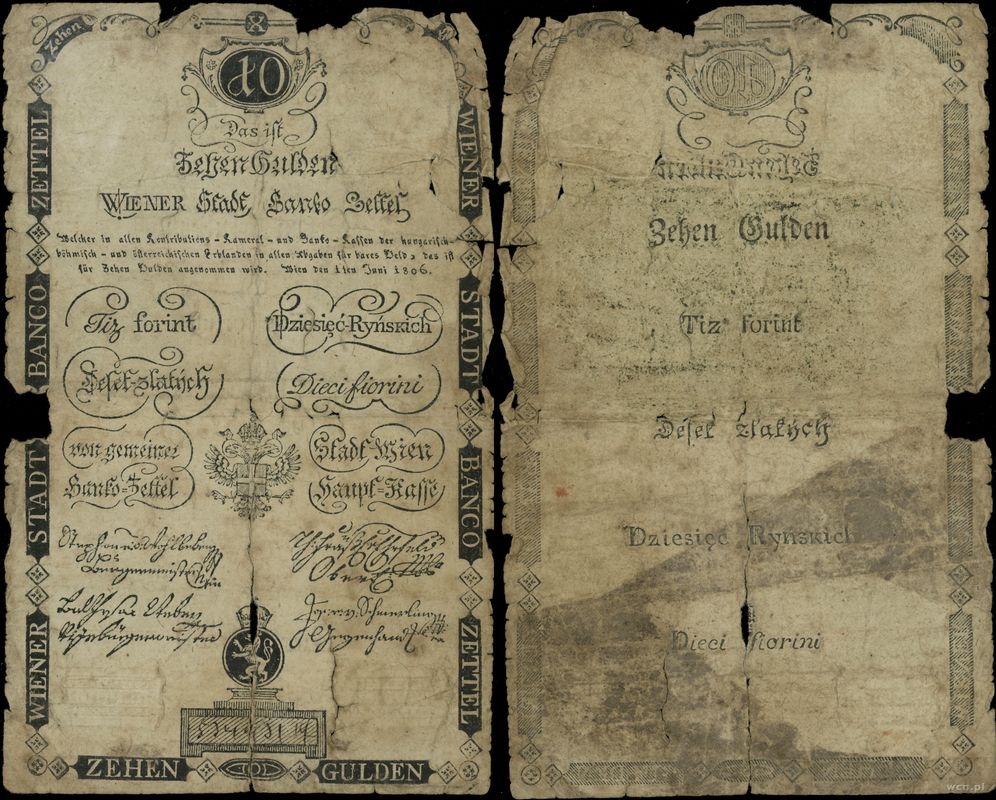 Zehen
X
10
Das ist
Zehen Gulden
WIENER Stadt Banko Zettel
Welcher in allen Kontributions - Kameral - und Banko - Kassen der hungarisch-
böhmisch - und österreichischen Erblanden in allen Abgaben für bares Geld, das ist
für Zehen Gulden angenommen wird. Wien den 1ten Juni 1806.
Tiz forint
Dziesięć-Ryńskich
Deset-zlatých
Dieci fiorini
von gemeiner
Stadt Wien
Banko-Zettel
Haupt-Kasse
WIENER STADT BANCO ZETTEL
WIENER STADT BANCO ZETTEL
ZEHEN GULDEN
Zehen Gulden
Tiz forint
Deset zlatých
Dziesięc Ryńskich
Dieci fiorini
wcn.pl